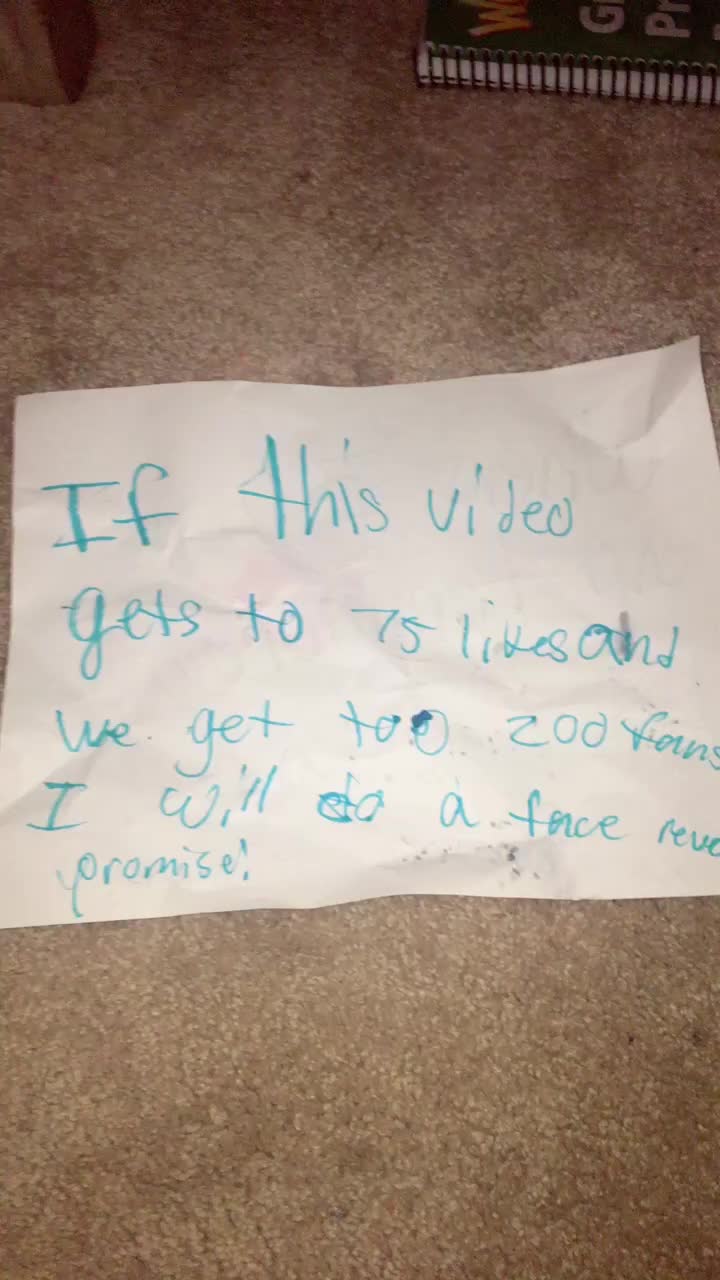 Gr
Pr
If this video
gets to 75 likes and
we get too 200 fans
I will do a face reve
promise!